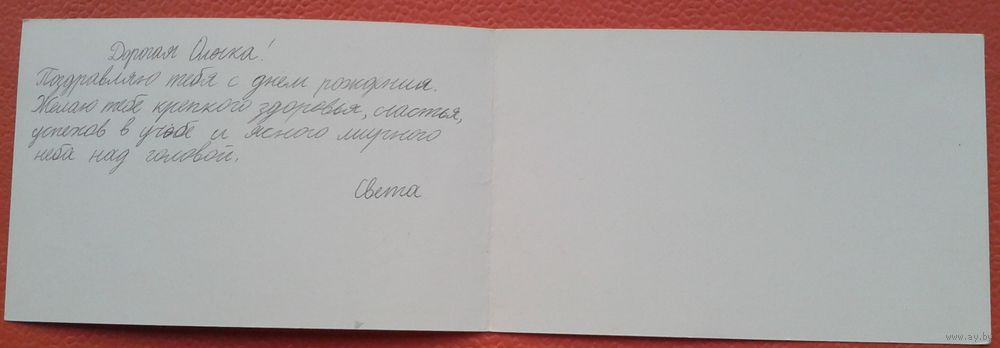 Дорогая Олечка!
Поздравляю тебя с днём рождения.
Желаю тебе крепкого здоровья, счастья,
успехов в учёбе и ясного мирного
неба над головой.
Света
www.ay.by